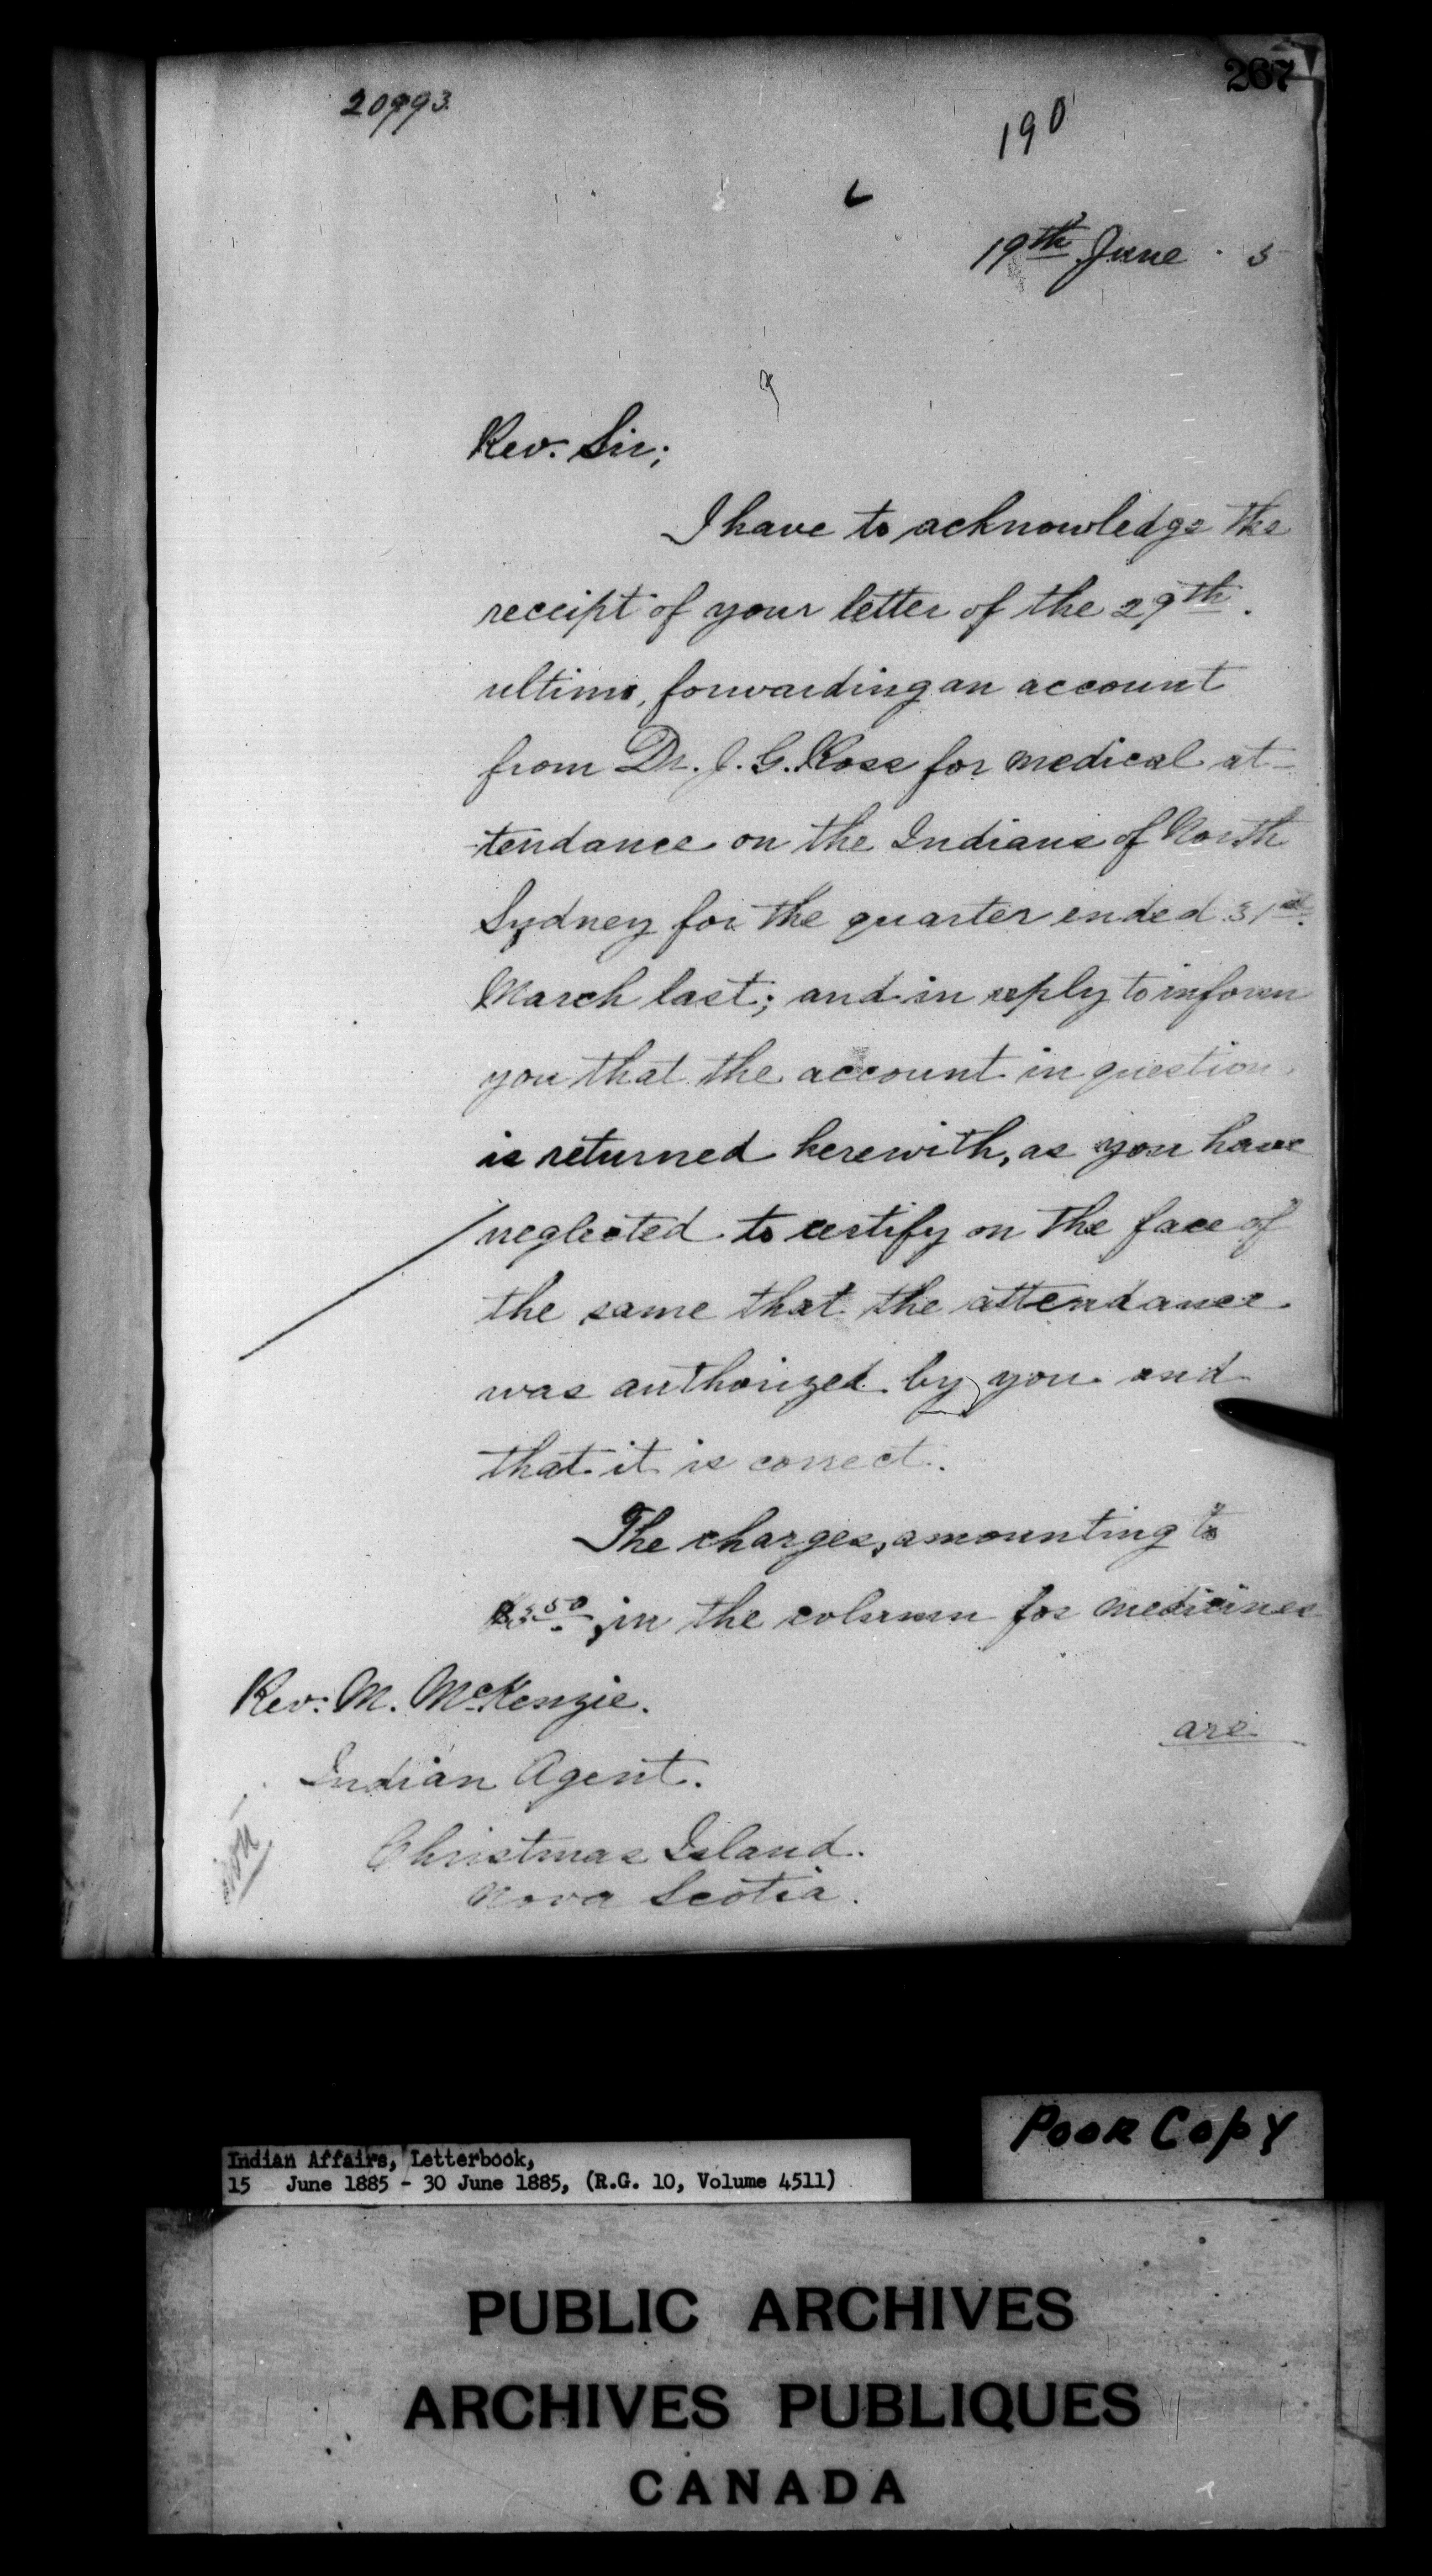 267
20993
190
19th June . 5
Rev. Sir;
I have to acknowledge the
receipt of your letter of the 29th.
ultimo, forwarding an account
from Dr. J. G. Ross for medical at-
tendance on the Indians of North
Sydney for the quarter ended 31st.
March last; and in reply to inform
you that the account in question,
is returned herewith, as you have
neglected to certify on the face of
the same that the attendance
was authorized by you and
that it is correct.
The charges, amounting to
in the column for medicines
are
Rev. M. McKenzie.
Indian Agent.
Christmas Island.
Nova Scotia.
Poor Copy
Indian Affairs, Letterbook,
15 June 1885 - 30 June 1885, (R.G. 10, Volume 4511)
PUBLIC ARCHIVES
ARCHIVES PUBLIQUES
CANADA